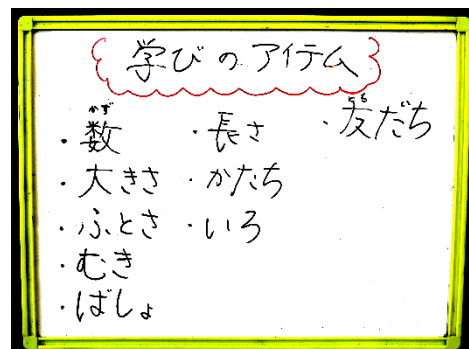 学びのアイテム
・数
かず
・大きさ
・ふとさ
・むき
・ばしょ
・長さ
・かたち
・いろ
・友だち
とも